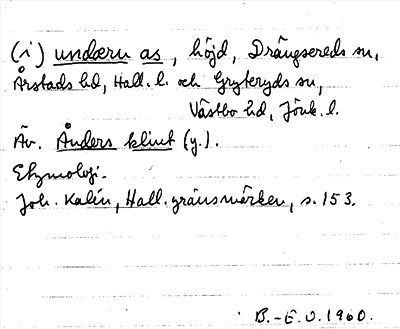 (i) undæru as, höjd, Drängsereds sn,
Årstads hd, Hall. l. och Gryteryds sn,
Västbo hd, Jönk. l.
Äv. Ånders klint (y.).
Etymologi.
Joh. Kalén, Hall. gränsmärken, s. 153.
B.-E. O. 1960.